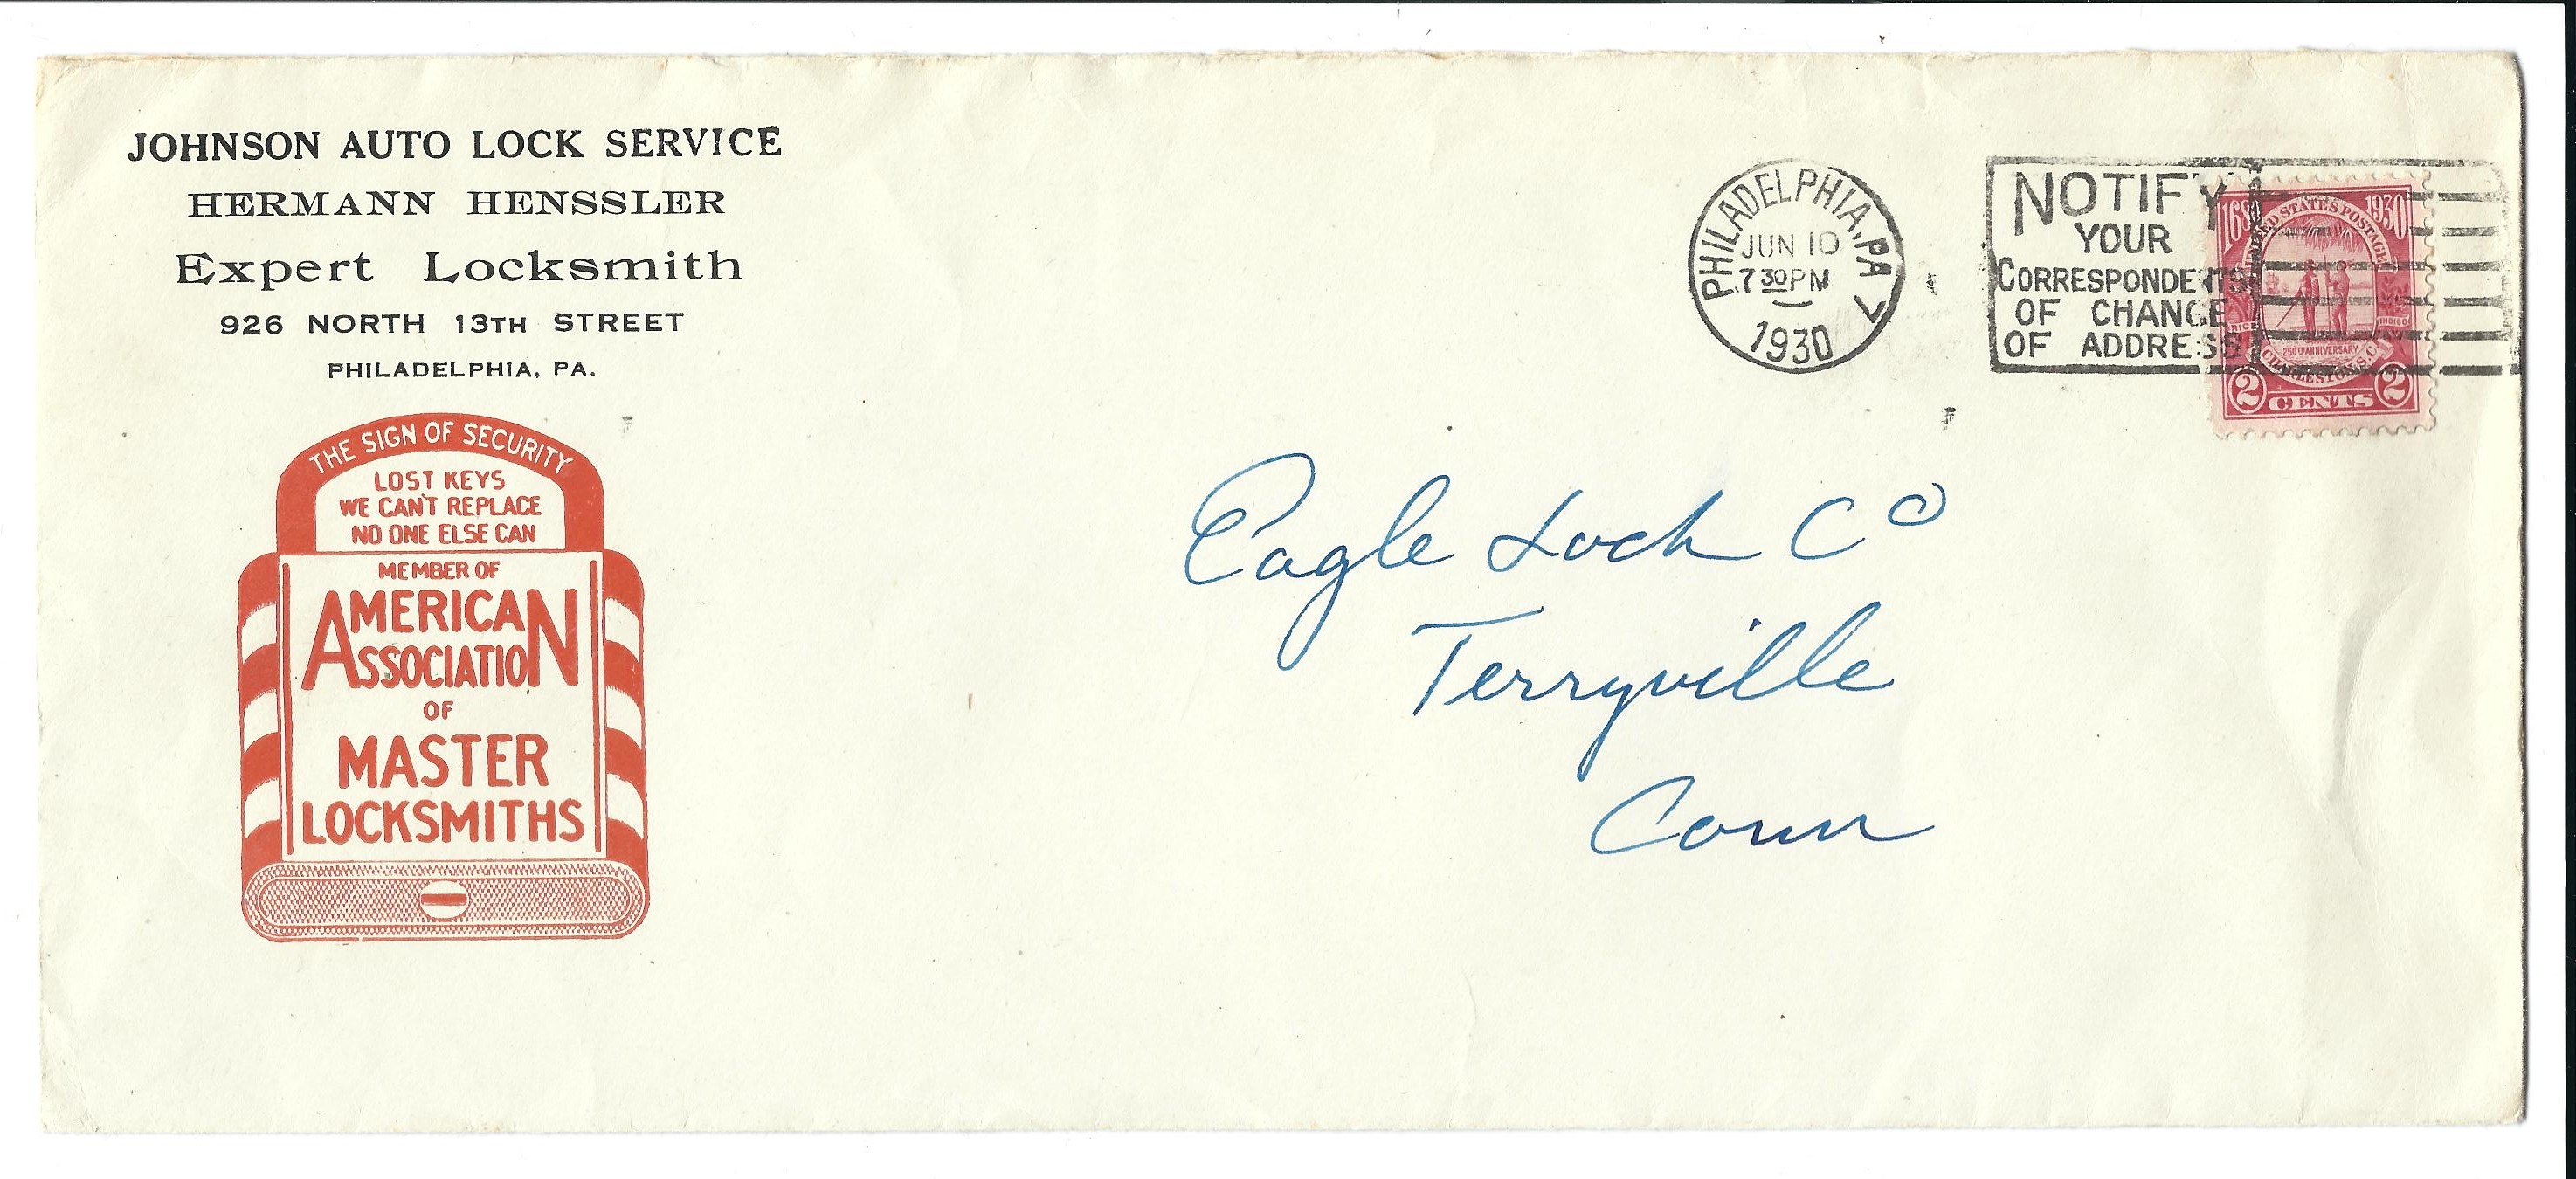 JOHNSON AUTO LOCK SERVICE
HERMANN HENSSLER
Expert Locksmith
926 NORTH 13TH STREET
PHILADELPHIA, PA.
THE SIGN OF SECURITY
LOST KEYS
WE CAN'T REPLACE
NO ONE ELSE CAN
MEMBER OF
AMERICAN
ASSOCIATION
OF
MASTER
LOCKSMITHS
PHILADELPHIA, PA
JUN 10
7 30 PM
1930
7
NOTIFY
YOUR
CORRESPONDENTS
OF CHANGE
OF ADDRESS
1680 UNITED STATES POSTAGE 1930
RICE INDIGO
250TH ANNIVERSARY
CHARLESTON, S.C.
2 CENTS 2
Eagle Lock Co
Terryville
Conn